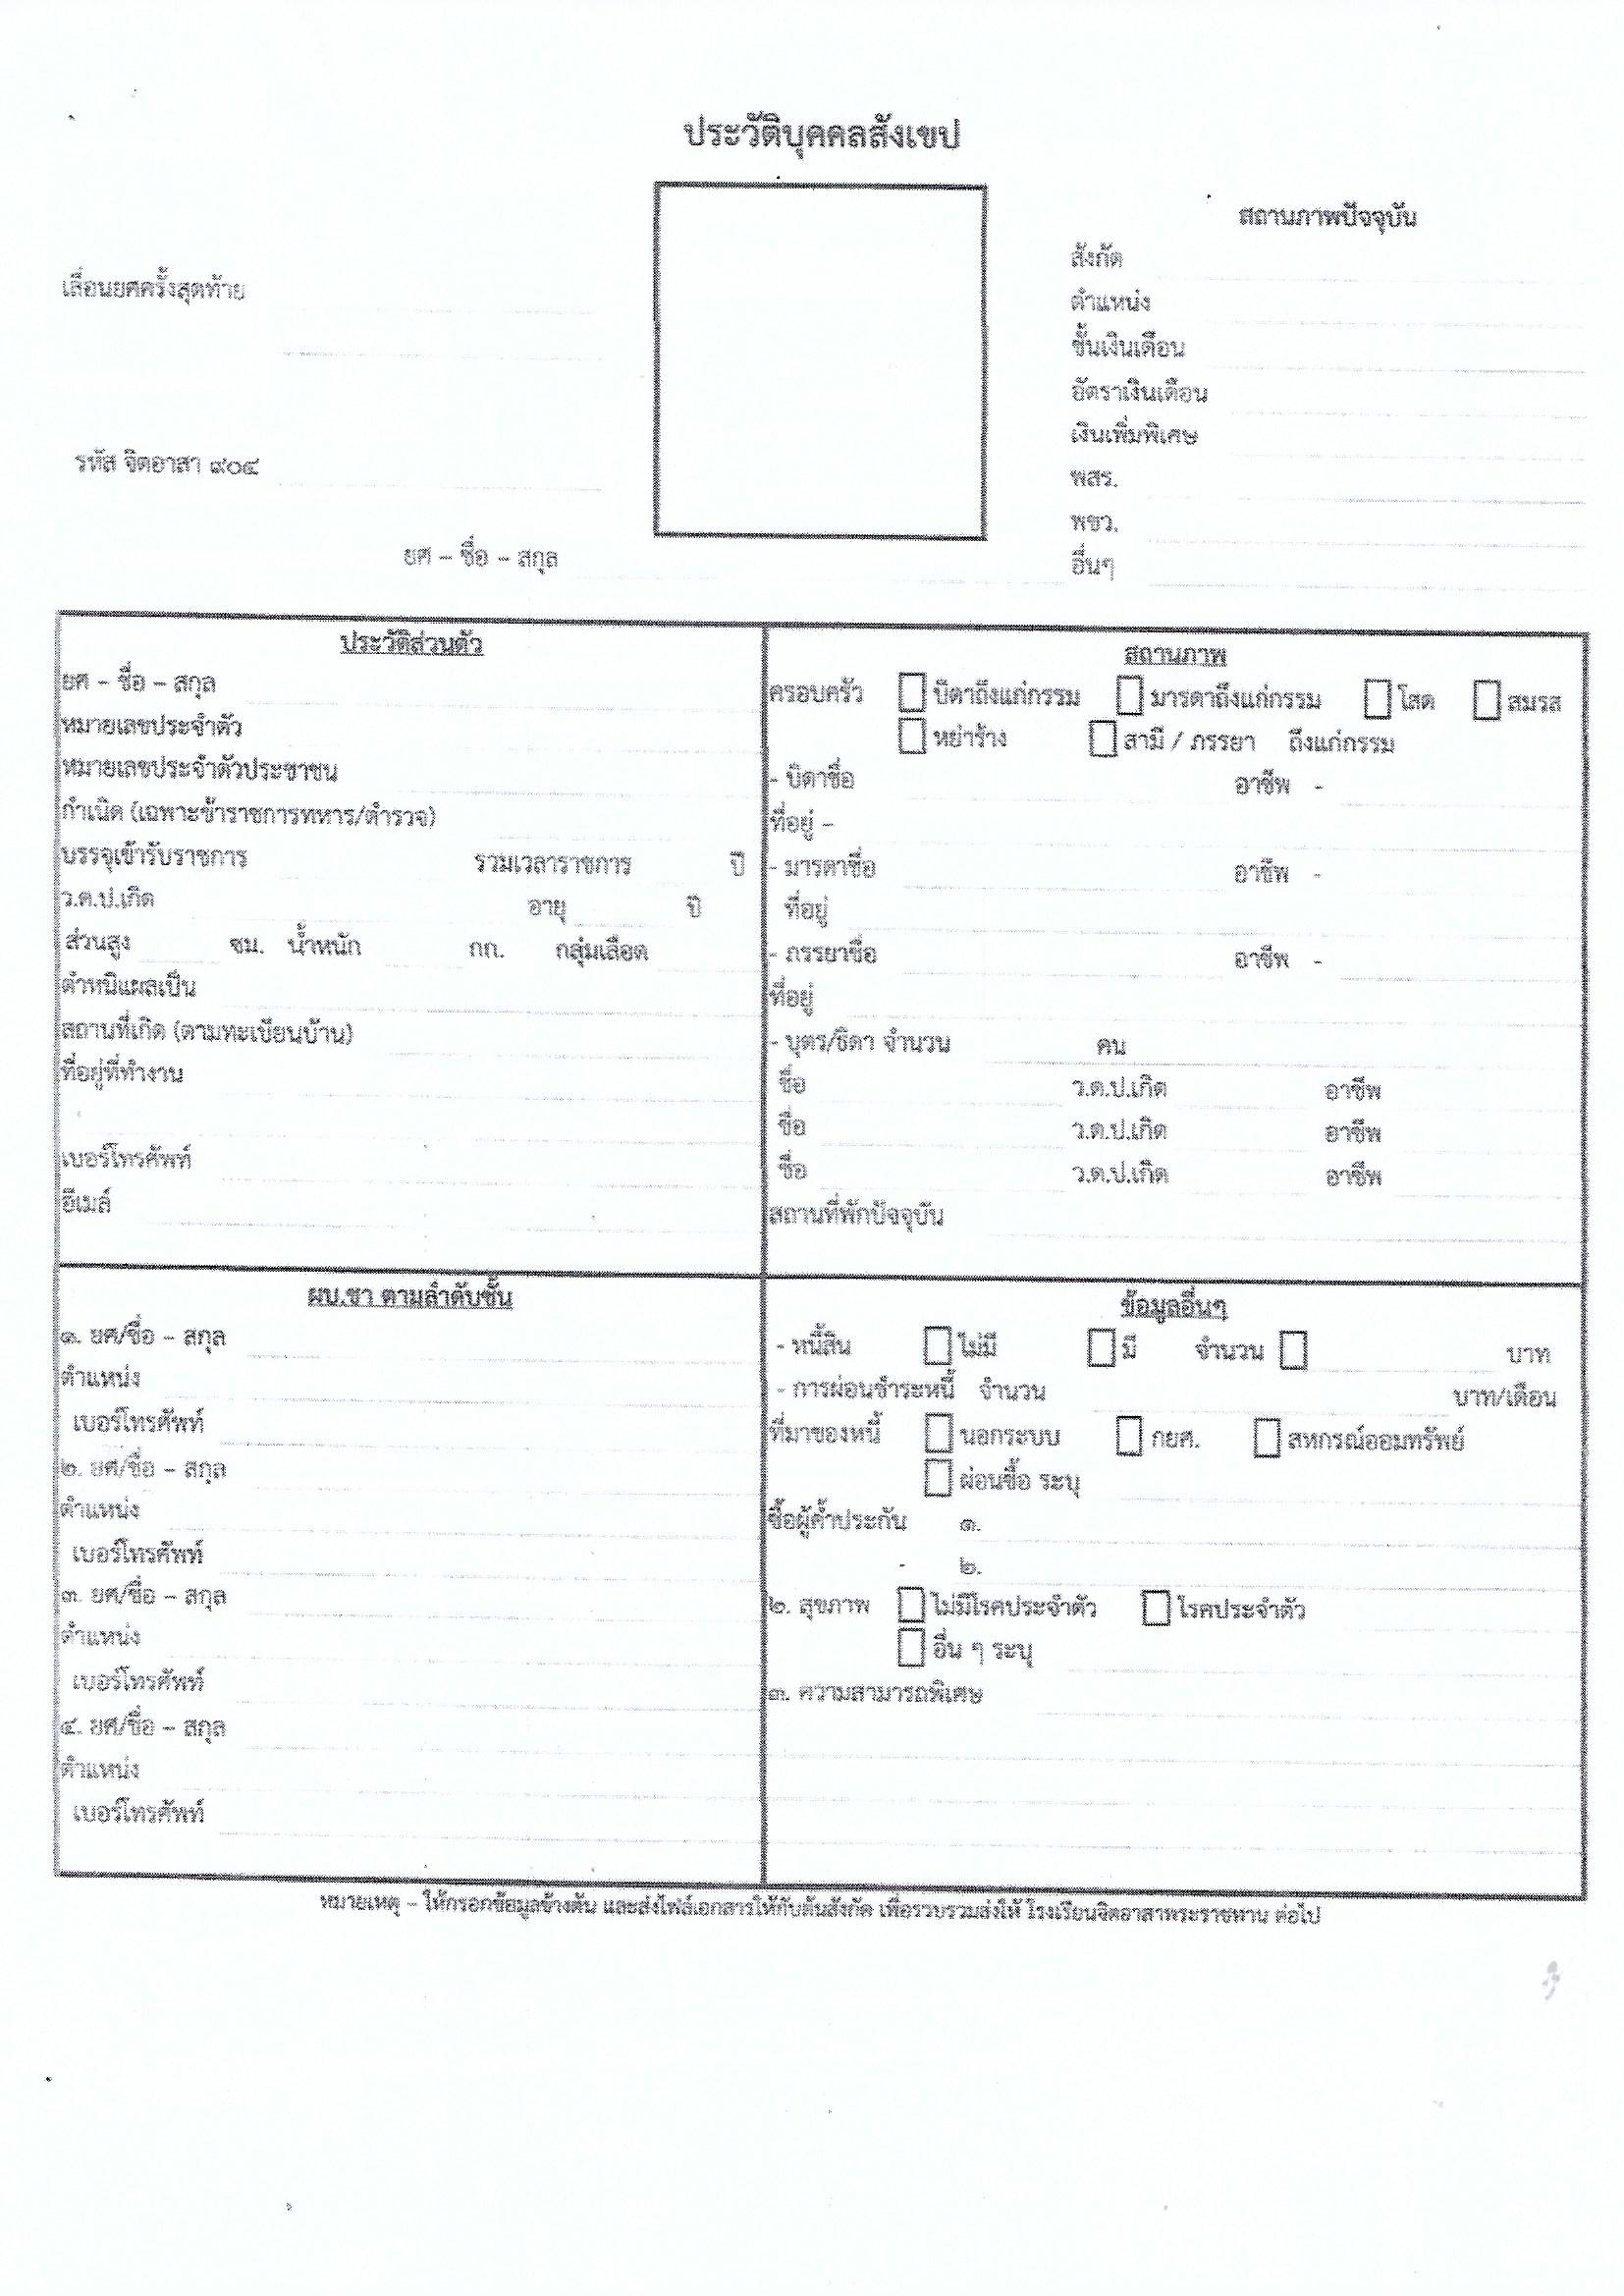 ประวัติบุคคลสังเขป
เลื่อนยศครั้งสุดท้าย
รหัส จิตอาสา ๙๐๔
ยศ – ชื่อ – สกุล
สถานภาพปัจจุบัน
สังกัด
ตำแหน่ง
ชั้นเงินเดือน
อัตราเงินเดือน
เงินเพิ่มพิเศษ
พสร.
พชว.
อื่นๆ
ประวัติส่วนตัว
ยศ – ชื่อ – สกุล
หมายเลขประจำตัว
หมายเลขประจำตัวประชาชน
กำเนิด (เฉพาะข้าราชการทหาร/ตำรวจ)
บรรจุเข้ารับราชการ รวมเวลาราชการ ปี
ว.ด.ป.เกิด อายุ ปี
ส่วนสูง ซม. น้ำหนัก กก. กลุ่มเลือด
ตำหนิแผลเป็น
สถานที่เกิด (ตามทะเบียนบ้าน)
ที่อยู่ที่ทำงาน
เบอร์โทรศัพท์
อีเมล์
สถานภาพ
ครอบครัว บิดาถึงแก่กรรม มารดาถึงแก่กรรม โสด สมรส
หย่าร้าง สามี / ภรรยา ถึงแก่กรรม
- บิดาชื่อ อาชีพ -
ที่อยู่ –
- มารดาชื่อ อาชีพ -
ที่อยู่
- ภรรยาชื่อ อาชีพ -
ที่อยู่
- บุตร/ธิดา จำนวน คน
ชื่อ ว.ด.ป.เกิด อาชีพ
ชื่อ ว.ด.ป.เกิด อาชีพ
ชื่อ ว.ด.ป.เกิด อาชีพ
สถานที่พักปัจจุบัน
ผบ.ชา ตามลำดับชั้น
๑. ยศ/ชื่อ – สกุล
ตำแหน่ง
เบอร์โทรศัพท์
๒. ยศ/ชื่อ – สกุล
ตำแหน่ง
เบอร์โทรศัพท์
๓. ยศ/ชื่อ – สกุล
ตำแหน่ง
เบอร์โทรศัพท์
๔. ยศ/ชื่อ – สกุล
ตำแหน่ง
เบอร์โทรศัพท์
ข้อมูลอื่นๆ
- หนี้สิน ไม่มี มี จำนวน บาท
- การผ่อนชำระหนี้ จำนวน บาท/เดือน
ที่มาของหนี้ นอกระบบ กยศ. สหกรณ์ออมทรัพย์
ผ่อนซื้อ ระบุ
ชื้อผู้ค้ำประกัน ๑.
- ๒.
๒. สุขภาพ ไม่มีโรคประจำตัว โรคประจำตัว
อื่น ๆ ระบุ
๓. ความสามารถพิเศษ
หมายเหตุ – ให้กรอกข้อมูลข้างต้น และส่งไฟล์เอกสารให้กับต้นสังกัด เพื่อรวบรวมส่งให้ โรงเรียนจิตอาสาพระราชทาน ต่อไป